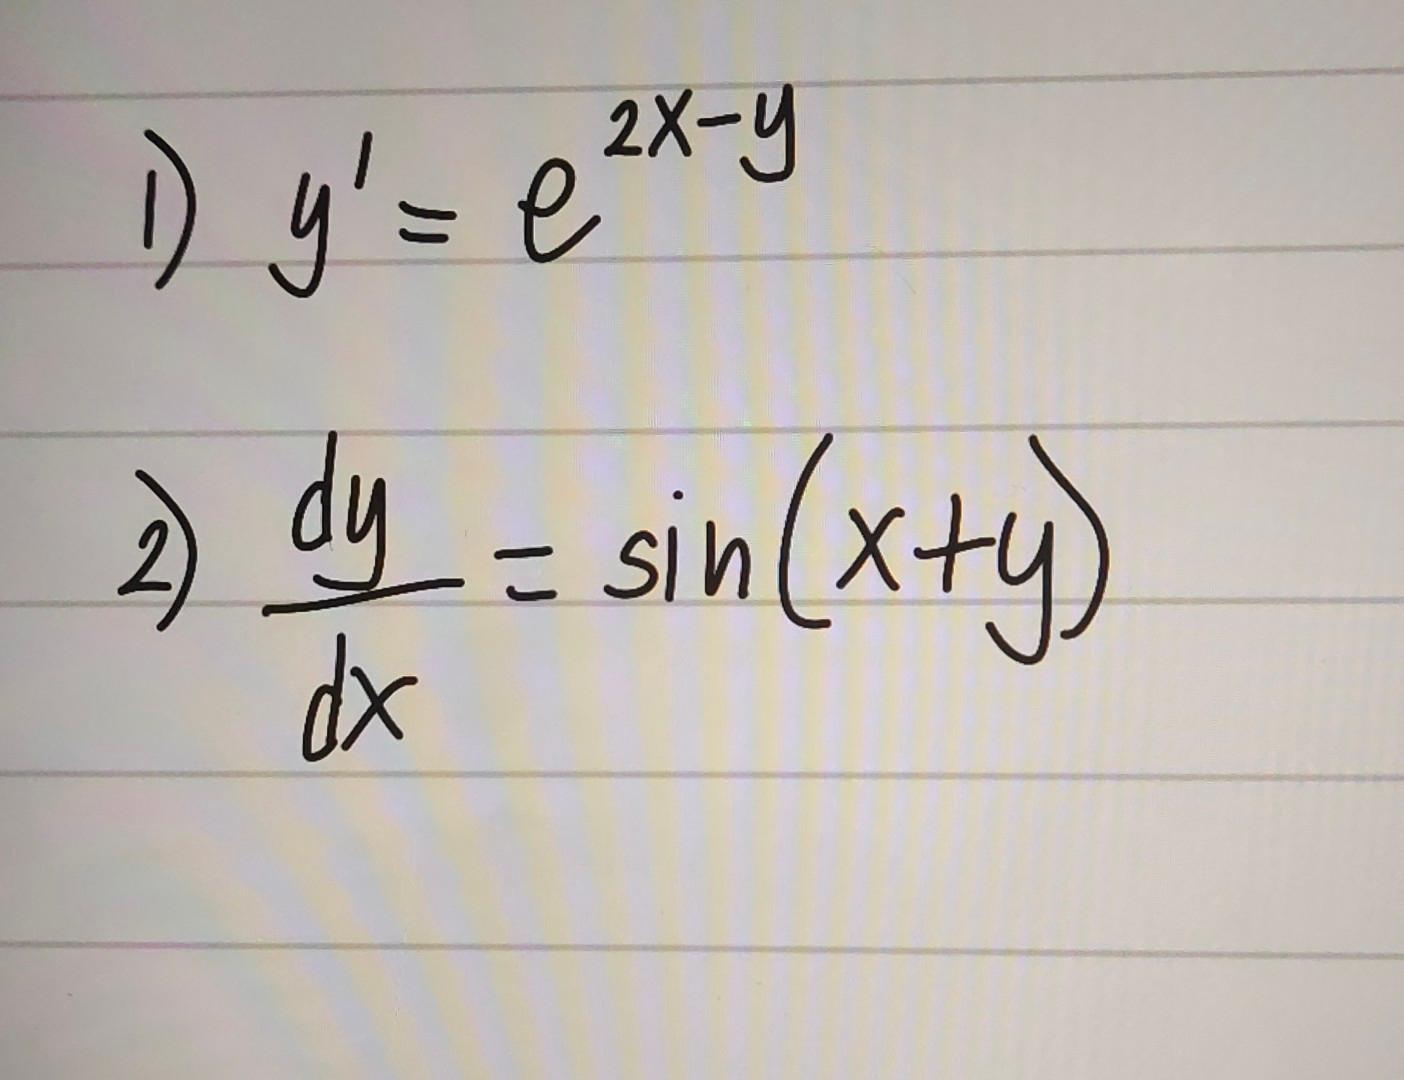 1) y' = e^{2x-y}
2) dy/dx = sin(x+y)